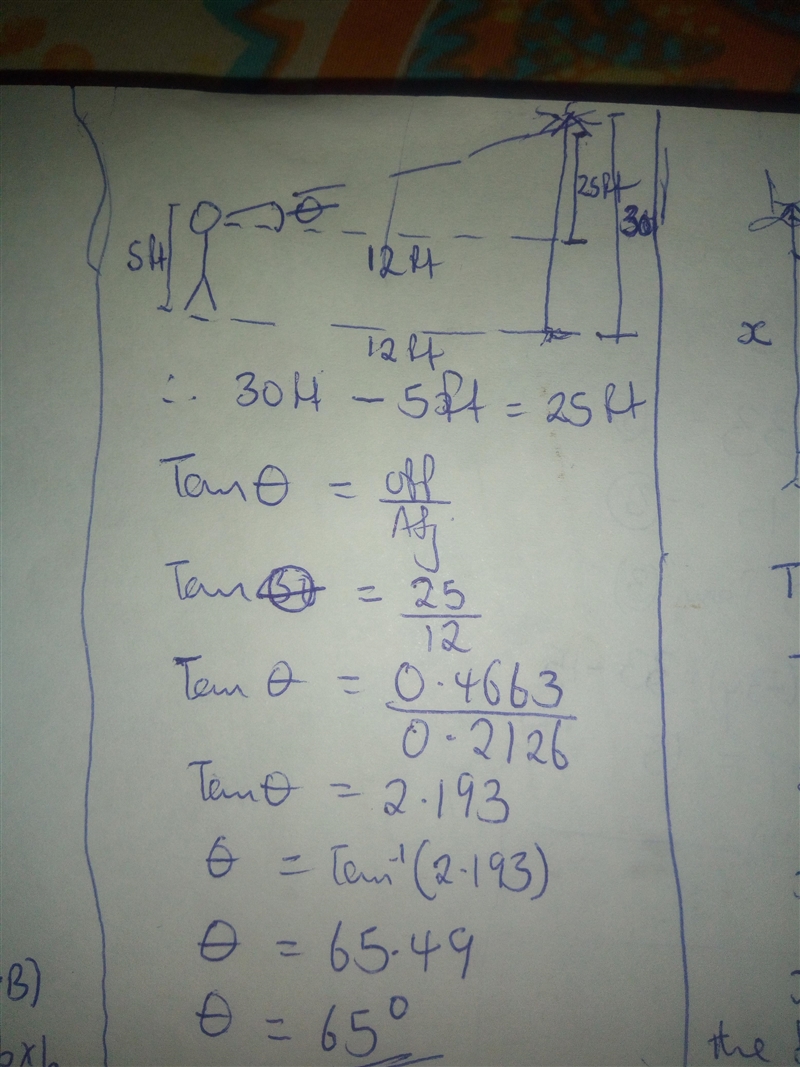 θ
25ft
30
5ft
12ft
12ft
∴ 30ft - 5ft = 25ft
Tanθ = Opp/Adj
Tan = 25/12
Tan θ = 0.4663/0.2126
Tanθ = 2.193
θ = Tan⁻¹(2.193)
θ = 65.49
θ = 65°
x
T
B)
the